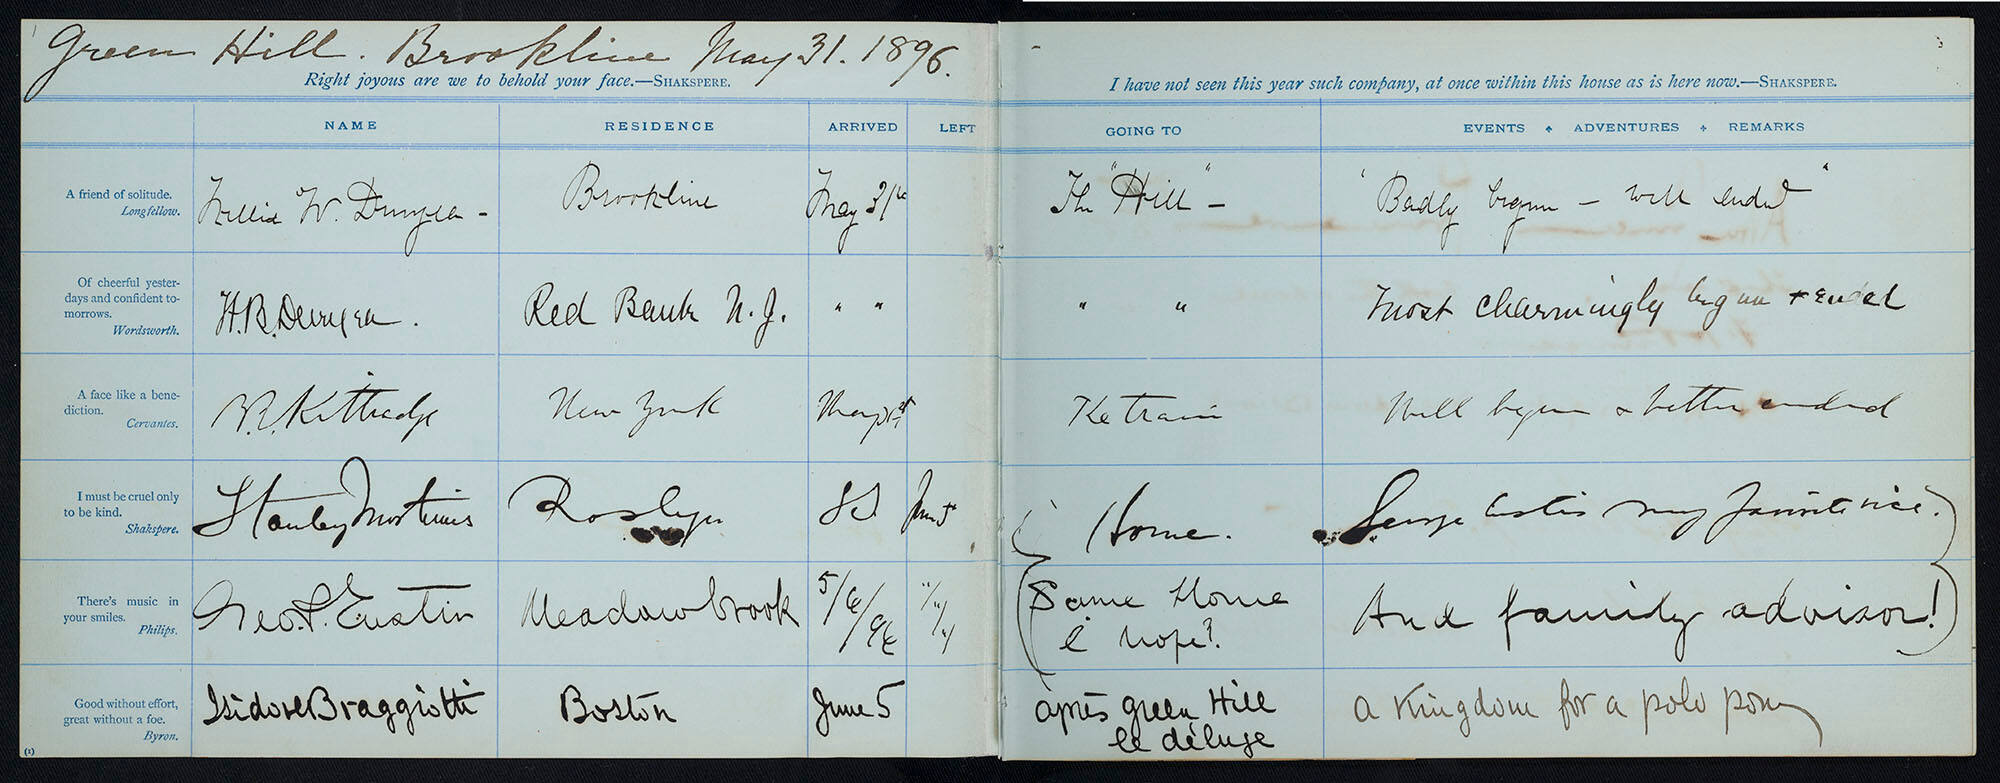 Green Hill. Brookline May 31. 1896.
Right joyous are we to behold your face.—SHAKSPERE.
I have not seen this year such company, at once within this house as is here now.—SHAKSPERE.
NAME RESIDENCE ARRIVED LEFT GOING TO EVENTS ADVENTURES REMARKS
A friend of solitude.
Longfellow.
W. Brookline May 31st The "Hill" — "Badly begun — well ended"
Of cheerful yester-
days and confident to-
morrows.
Wordsworth.
H.B. Red Bank N.J. " " " " Most charmingly begun + ended
A face like a bene-
diction.
Cervantes.
Kittredge New York May 31st Well begun & better ended
I must be cruel only
to be kind.
Shakspere.
Stanley Mortimer Roslyn Home. my favorite vice.
There's music in
your smiles.
Philips.
Geo. P. Eustis Meadowbrook 5/6/96 "/"/" Same Home
I hope? And family advisor!
Good without effort,
great without a foe.
Byron.
Isidore Braggiotti Boston June 5 après Green Hill
le déluge
a Kingdom for a polo pony
(1)